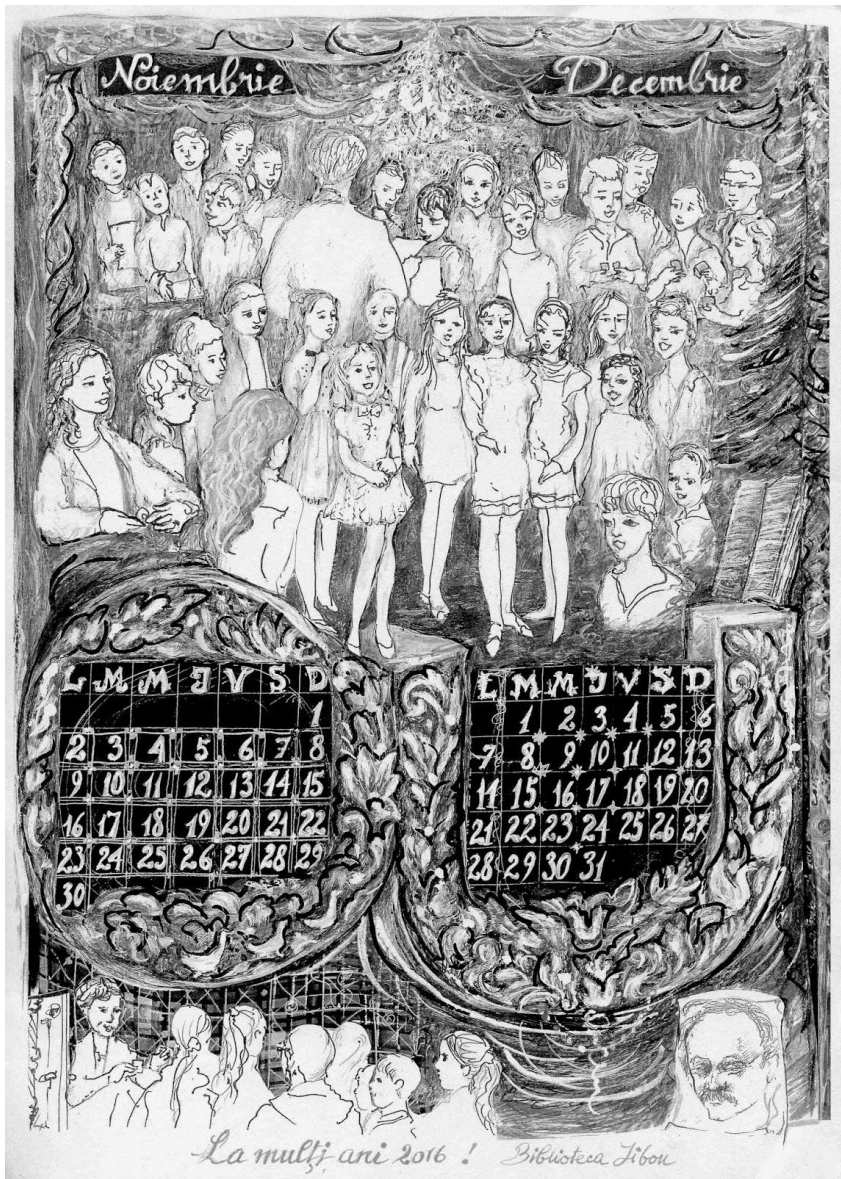 Noiembrie
Decembrie
L M M J V S D
1
2 3 4 5 6 7 8
9 10 11 12 13 14 15
16 17 18 19 20 21 22
23 24 25 26 27 28 29
30
L M M J V S D
1 2 3 4 5 6
7 8 9 10 11 12 13
14 15 16 17 18 19 20
21 22 23 24 25 26 27
28 29 30 31
La mulți ani 2016 !
Biblioteca Jibou